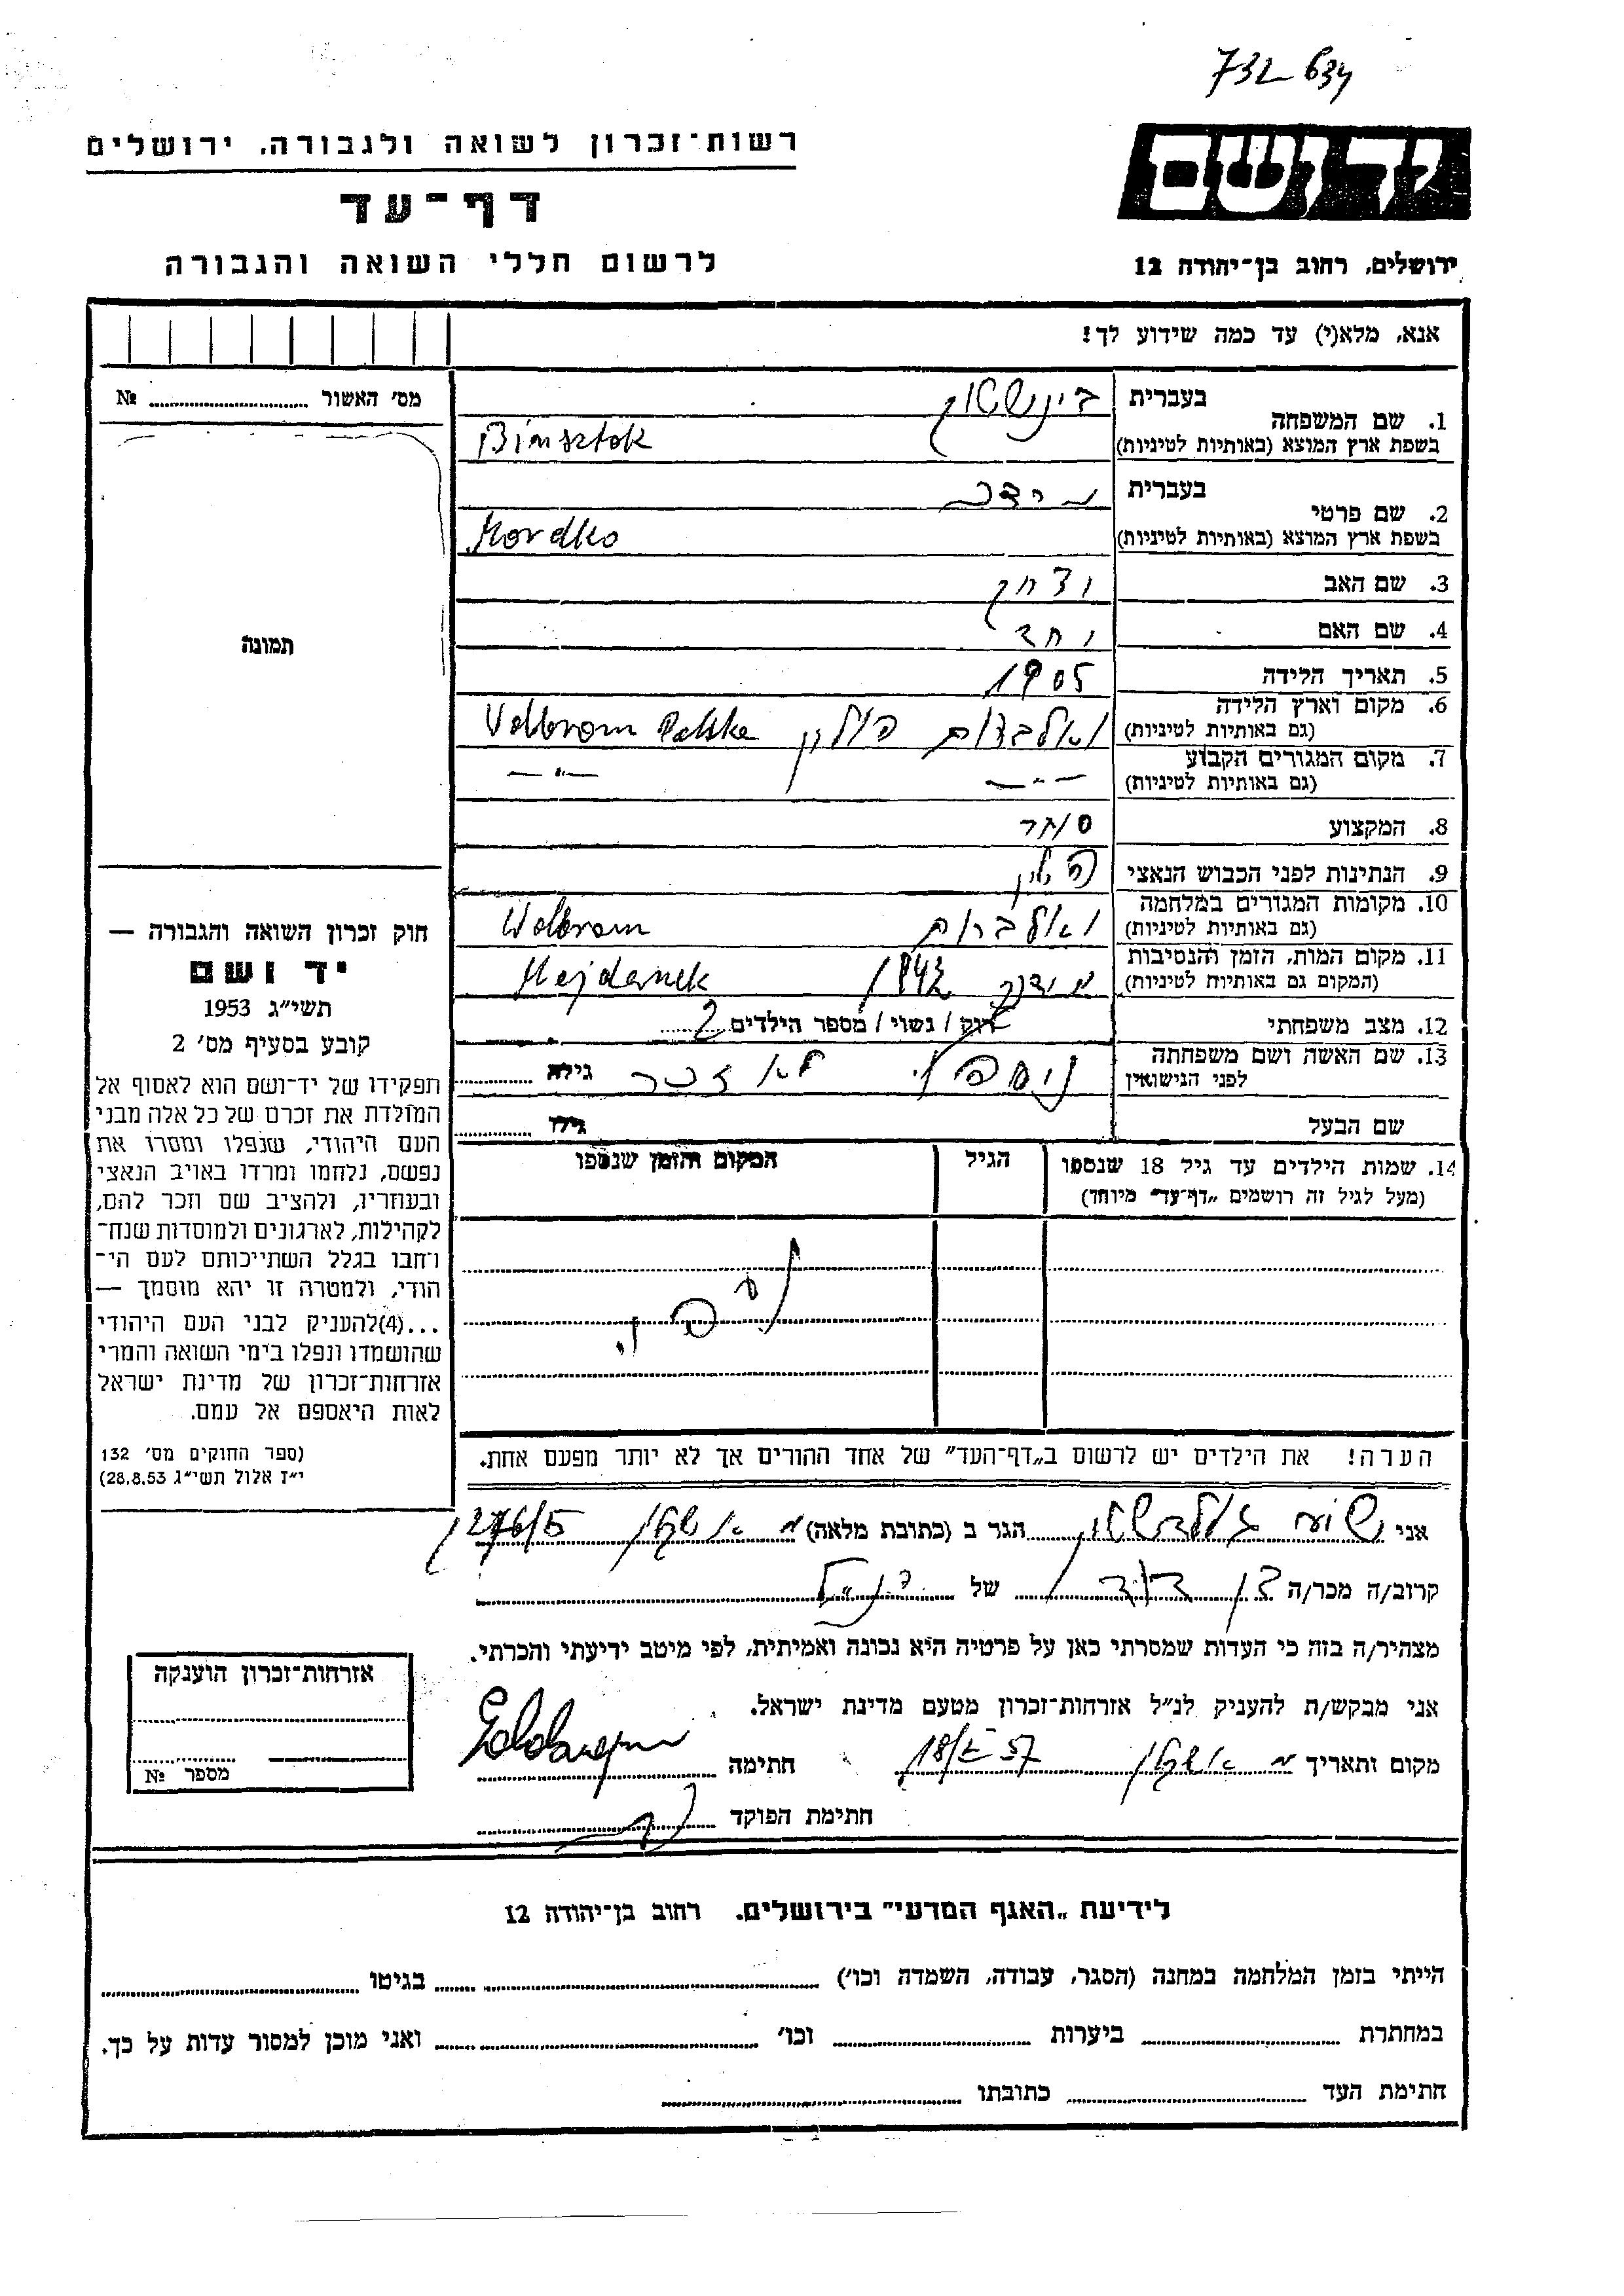 732 634
רשות־זכרון לשואה ולגבורה, ירושלים
יד ושם
דף־עד
לרשום חללי השואה והגבורה
ירושלים, רחוב בן־יהודה 12
אנא, מלא(י) עד כמה שידוע לך!
מס' האשור № 
1. שם המשפחה
בעברית בינשטוק
בשפת ארץ המוצא (באותיות לטיניות) Bimsztok
2. שם פרטי
בעברית
בשפת ארץ המוצא (באותיות לטיניות) Mordko
3. שם האב
4. שם האם
5. תאריך הלידה 1905
6. מקום וארץ הלידה
(גם באותיות לטיניות) ואלברום פולין Volbrom Polska
7. מקום המגורים הקבוע
(גם באותיות לטיניות) — " — — " —
8. המקצוע סוחר
9. הנתינות לפני הכבוש הנאצי פולין
10. מקומות המגורים במלחמה
(גם באותיות לטיניות) ואלברום Wolbrom
11. מקום המות, הזמן והנסיבות
(המקום גם באותיות לטיניות) 1942 Majdanek
12. מצב משפחתי רוק / נשוי / מספר הילדים 2
13. שם האשה ושם משפחתה
לפני הנישואין ניספו לא זכר גילה
שם הבעל גילו
14. שמות הילדים עד גיל 18 שנספו
(מעל לגיל זה רושמים „דף־עד" מיוחד)
הגיל
המקום והזמן שנספו
הערה! את הילדים יש לרשום ב„דף־העד" של אחד ההורים אך לא יותר מפעם אחת.
תמונה
חוק זכרון השואה והגבורה —
יד ושם
תשי"ג 1953
קובע בסעיף מס' 2
תפקידו של יד־ושם הוא לאסוף אל
המולדת את זכרם של כל אלה מבני
העם היהודי, שנפלו ומסרו את
נפשם, נלחמו ומרדו באויב הנאצי
ובעוזריו, ולהציב שם וזכר להם,
לקהילות, לארגונים ולמוסדות שנח־
רבו בגלל השתייכותם לעם הי־
הודי, ולמטרה זו יהא מוסמך —
...(4)להעניק לבני העם היהודי
שהושמדו ונפלו בימי השואה והמרי
אזרחות־זכרון של מדינת ישראל
לאות היאספם אל עמם.
(ספר החוקים מס' 132
י"ז אלול תשי"ג 28.8.53)
אני הגר ב (כתובת מלאה) אשקלון 276/5
קרוב/ה מכר/ה בן דוד של הנ"ל
מצהיר/ה בזה כי העדות שמסרתי כאן על פרטיה היא נכונה ואמיתית, לפי מיטב ידיעתי והכרתי.
אני מבקש/ת להעניק לנ"ל אזרחות־זכרון מטעם מדינת ישראל.
מקום ותאריך אשקלון 57 חתימה
חתימת הפוקד
אזרחות־זכרון הוענקה
מספר №
לידיעת „האגף המדעי" בירושלים. רחוב בן־יהודה 12
הייתי בזמן המלחמה במחנה (הסגר, עבודה, השמדה וכו') בגיטו
במחתרת ביערות וכו' ואני מוכן למסור עדות על כך.
חתימת העד כתובתו